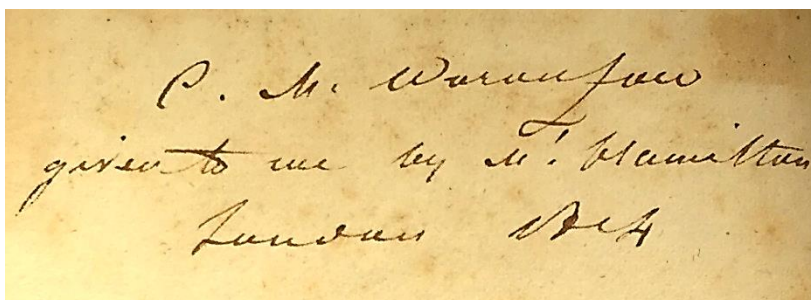 C. M. Woronzow
given to me by Mr. Hamilton
London 1814